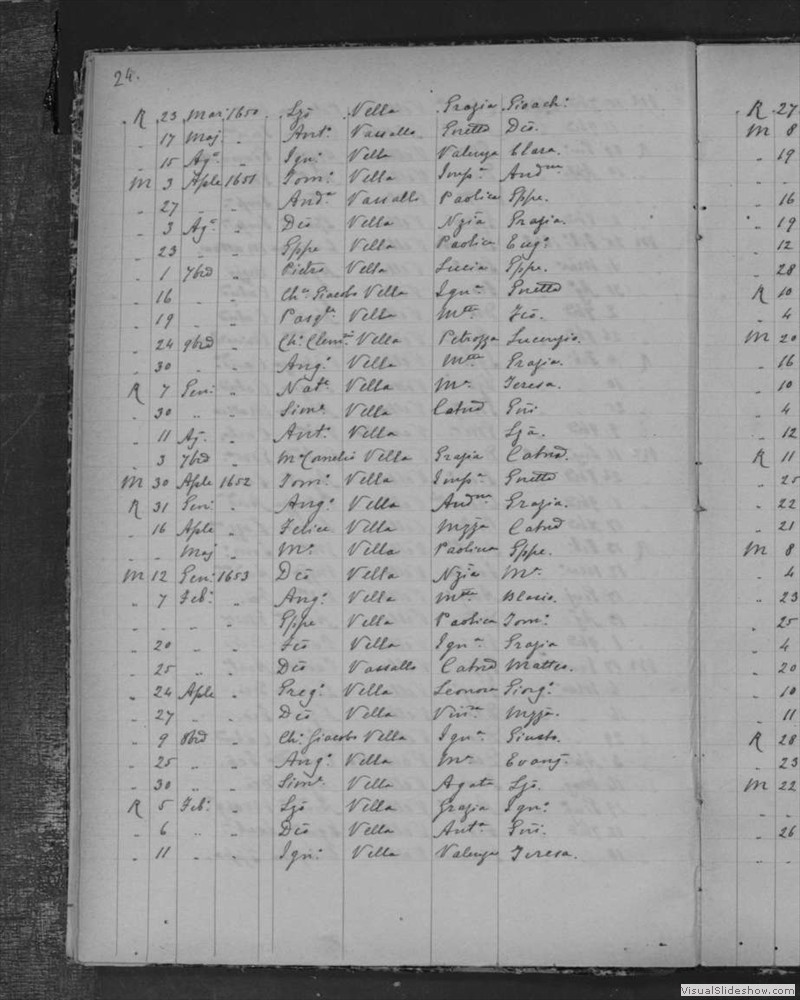 24.
R 23 Mar: 1650 Ljō Vella Grazia Gioach:
" 17 Maj " Ant: Vassallo Gnetta Deō.
" 15 Ag: " Ign: Vella Valenza Clara.
M 3 Aple 1651 Tom: Vella Imp:a And:na
" 27 " " And:a Vassallo Paolica Gppe.
" 3 Ag: " Deō Vella Nzia Grazia.
" 23 " " Gppe Vella Paolica Eug:a
" 1 7brē " Pietro Vella Lucia Gppe.
" 16 " " Ch: Giacobo Vella Ign:a Gnetta
" 19 " " Pasq:le Vella M:tta
" 24 9brē " Ch: Clem: Vella Petrozza Lucenzio.
" 30 " " Ang: Vella M:tta Grazia.
R 7 Gen: " Nat:e Vella M:a Teresa.
" 30 " " Sim:e Vella Catnā Gni.
" 11 Ag. " Ant: Vella Ljā.
" 3 7brē " M: Cornelio Vella Grazia Catnā.
M 30 Aple 1652 Tom: Vella Imp:a Gnetta
R 31 Gen: " Ang: Vella And:na Grazia.
" 16 Aple " Felice Vella Mzza Catnā
" " Maj " M:o Vella Paolina Gppe.
M 12 Gen: 1653 Deō Vella Nzia M:a
" 7 Feb: " Ang: Vella M:tta Blasio.
" " " " Gppe Vella Paolica Tom:
" 20 " " Vella Ign:a Grazia
" 25 " " Deō Vassallo Catnā Matteo.
" 24 Aple " Greg: Vella Leonora Giorg:
" 27 " " Deō Vella Vin:a Mzza.
" 9 8brē " Ch: Giacobo Vella Ign:a Giusto.
" 25 " " Ang: Vella M:a Evang.
" 30 " " Sim:e Vella Agata Ljō.
R 5 Feb: " Ljō Vella Grazia Ign:
" 6 " " Deō Vella Ant:a Gni.
" 11 " " Ign: Vella Valenza Teresa.
R 27
M 8
" 19
" "
" 16
" 19
" 12
" 28
R 10
" 4
M 20
" 16
" 10
" 4
" 12
R 11
" 25
" 22
" 21
M 8
" 4
" 23
" 25
" 4
" 20
" 10
" 11
R 28
" 23
M 22
" "
" 26
" "
VisualSlideshow.com